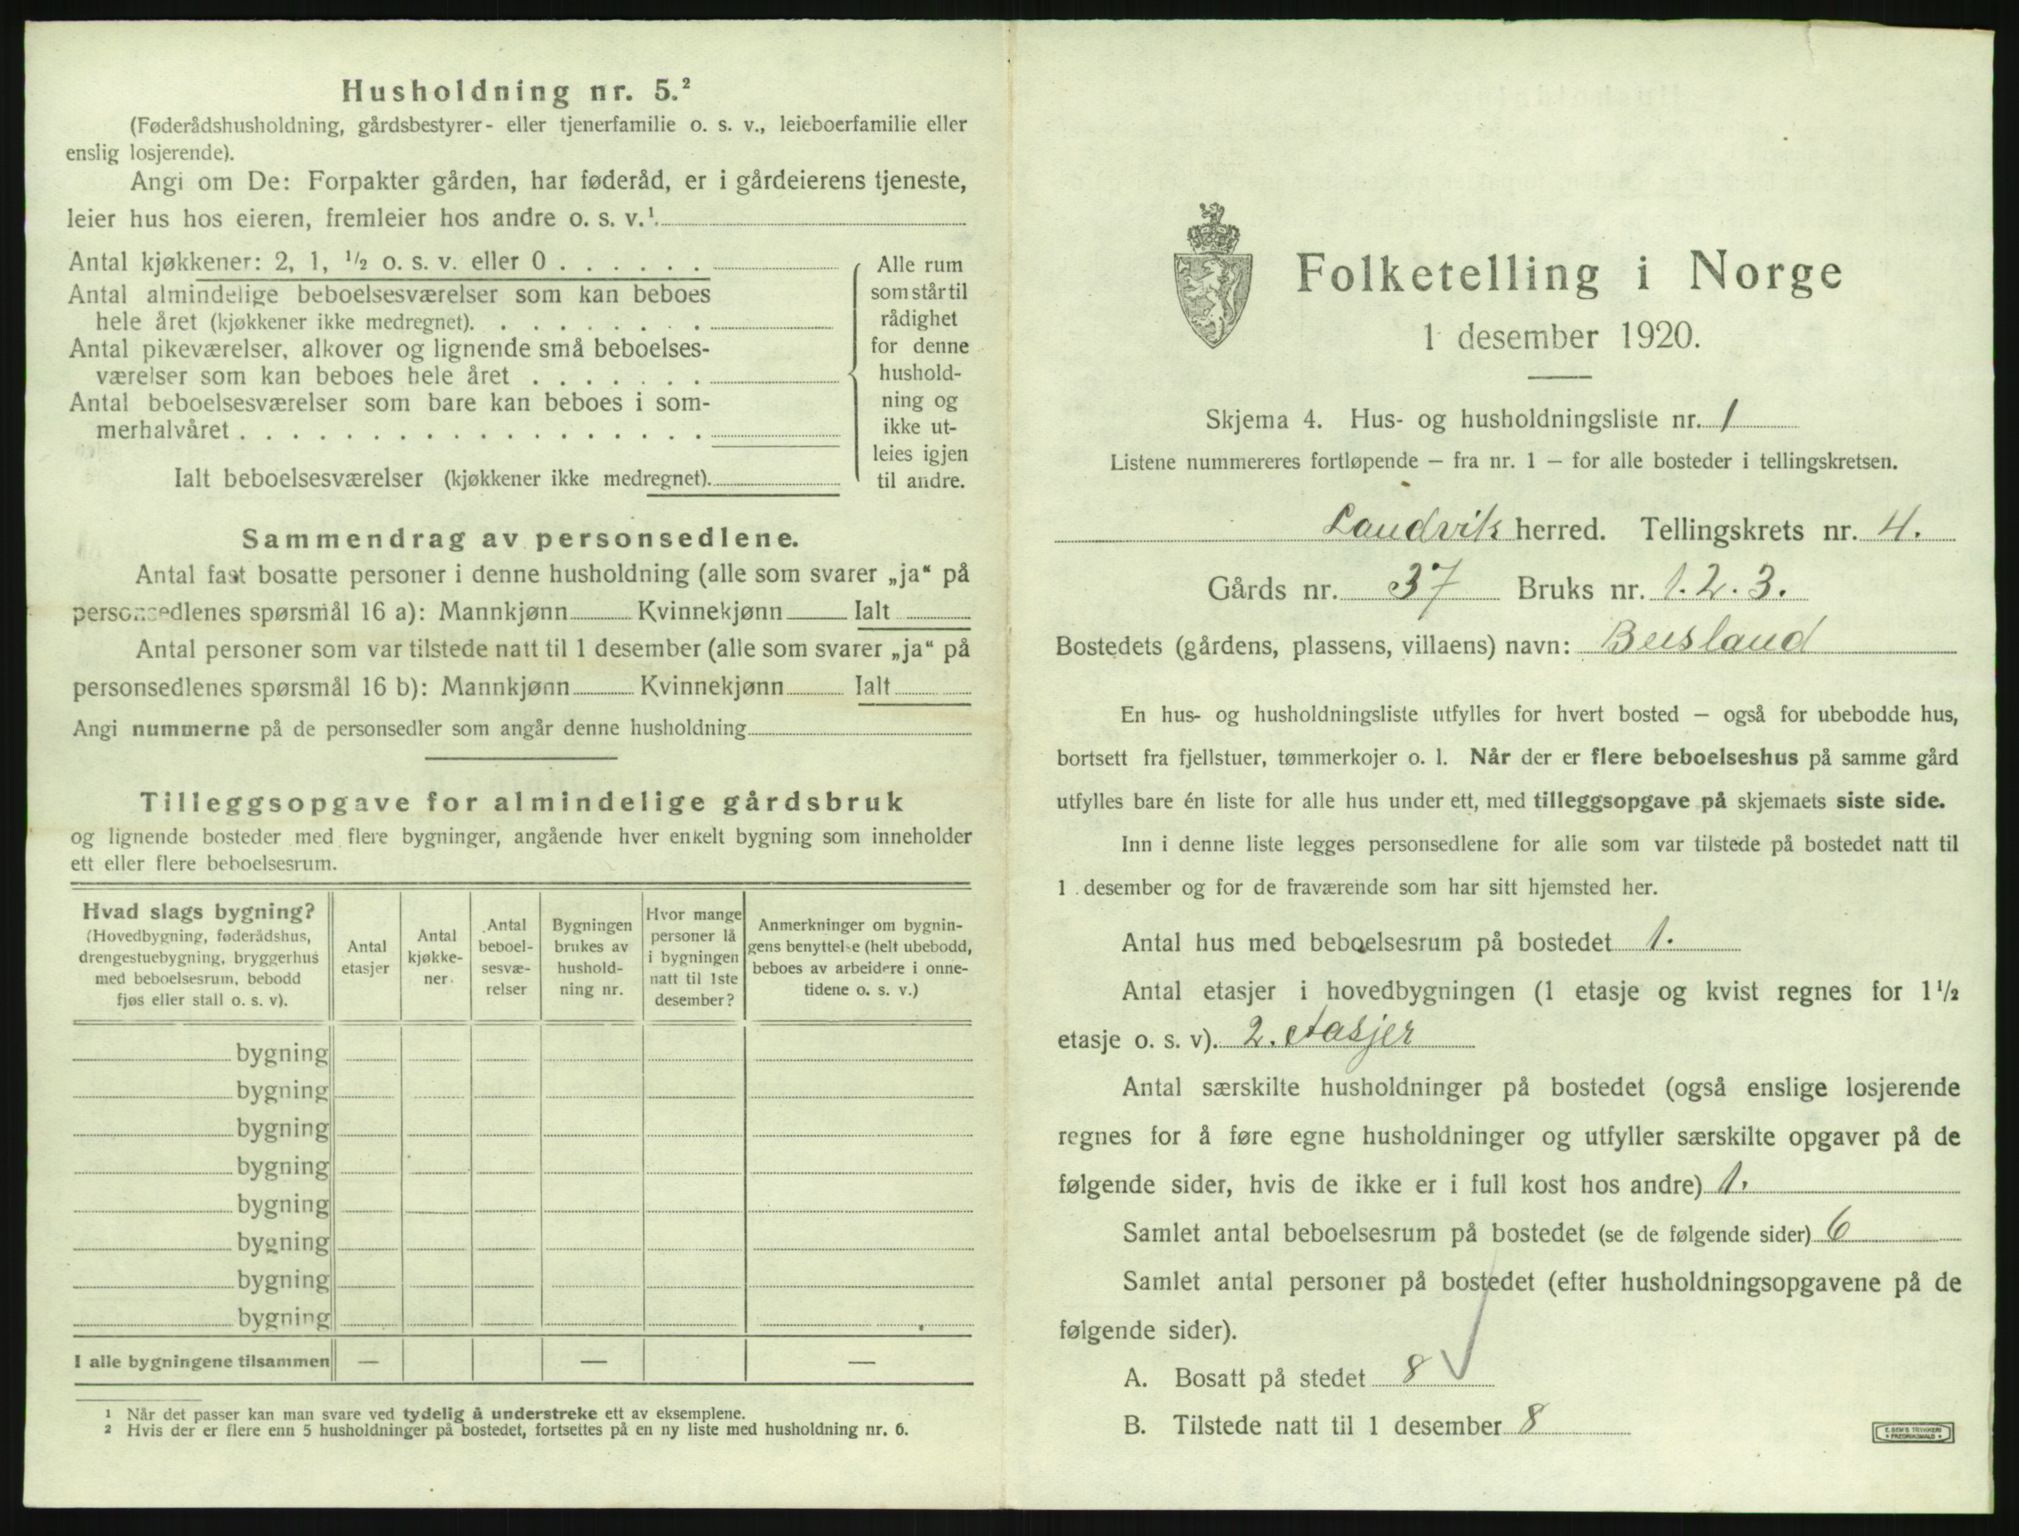 Husholdning nr. 5.²
(Føderådshusholdning, gårdsbestyrer- eller tjenerfamilie o. s. v., leieboerfamilie eller
enslig losjerende).
Angi om De: Forpakter gården, har føderåd, er i gårdeierens tjeneste,
leier hus hos eieren, fremleier hos andre o. s. v.¹
Antal kjøkkener: 2, 1, ½ o. s. v. eller 0 . . . . . .
Antal almindelige beboelsesværelser som kan beboes
hele året (kjøkkener ikke medregnet). . . . . . . . .
Antal pikeværelser, alkover og lignende små beboelses-
værelser som kan beboes hele året . . . . . . .
Antal beboelsesværelser som bare kan beboes i som-
merhalvåret . . . . . . . . . . . . . . . . . .
Ialt beboelsesværelser (kjøkkener ikke medregnet).
Alle rum
som står til
rådighet
for denne
hushold-
ning og
ikke ut-
leies igjen
til andre.
Sammendrag av personsedlene.
Antal fast bosatte personer i denne husholdning (alle som svarer „ja“ på
personsedlenes spørsmål 16 a): Mannkjønn Kvinnekjønn Ialt
Antal personer som var tilstede natt til 1 desember (alle som svarer „ja“ på
personsedlenes spørsmål 16 b): Mannkjønn Kvinnekjønn Ialt
Angi nummerne på de personsedler som angår denne husholdning
Tilleggsopgave for almindelige gårdsbruk
og lignende bosteder med flere bygninger, angående hver enkelt bygning som inneholder
ett eller flere beboelsesrum.
Hvad slags bygning?
(Hovedbygning, føderådshus,
drengestuebygning, bryggerhus
med beboelsesrum, bebodd
fjøs eller stall o. s. v).
Antal
etasjer
Antal
kjøkke-
ner.
Antal
beboel-
sesvæ-
relser
Bygningen
brukes av
hushold-
ning nr.
Hvor mange
personer lå
i bygningen
natt til 1ste
desember?
Anmerkninger om bygnin-
gens benyttelse (helt ubebodd,
beboes av arbeidere i onne-
tidene o. s. v.)
bygning
bygning
bygning
bygning
bygning
bygning
bygning
bygning
I alle bygningene tilsammen — — —
¹ Når det passer kan man svare ved tydelig å understreke ett av eksemplene.
² Hvis der er flere enn 5 husholdninger på bostedet, fortsettes på en ny liste med husholdning nr. 6.
Folketelling i Norge
1 desember 1920.
Skjema 4. Hus- og husholdningsliste nr. 1
Listene nummereres fortløpende — fra nr. 1 — for alle bosteder i tellingskretsen.
Landvik herred. Tellingskrets nr. 4.
Gårds nr. 37 Bruks nr. 1. 2. 3.
Bostedets (gårdens, plassens, villaens) navn: Beisland
En hus- og husholdningsliste utfylles for hvert bosted — også for ubebodde hus,
bortsett fra fjellstuer, tømmerkojer o. l. Når der er flere beboelseshus på samme gård
utfylles bare én liste for alle hus under ett, med tilleggsopgave på skjemaets siste side.
Inn i denne liste legges personsedlene for alle som var tilstede på bostedet natt til
1 desember og for de fraværende som har sitt hjemsted her.
Antal hus med beboelsesrum på bostedet 1.
Antal etasjer i hovedbygningen (1 etasje og kvist regnes for 1½
etasje o. s. v). 2. etasjer
Antal særskilte husholdninger på bostedet (også enslige losjerende
regnes for å føre egne husholdninger og utfyller særskilte opgaver på de
følgende sider, hvis de ikke er i full kost hos andre) 1.
Samlet antal beboelsesrum på bostedet (se de følgende sider) 6
Samlet antal personer på bostedet (efter husholdningsopgavene på de
følgende sider).
A. Bosatt på stedet 8
B. Tilstede natt til 1 desember 8